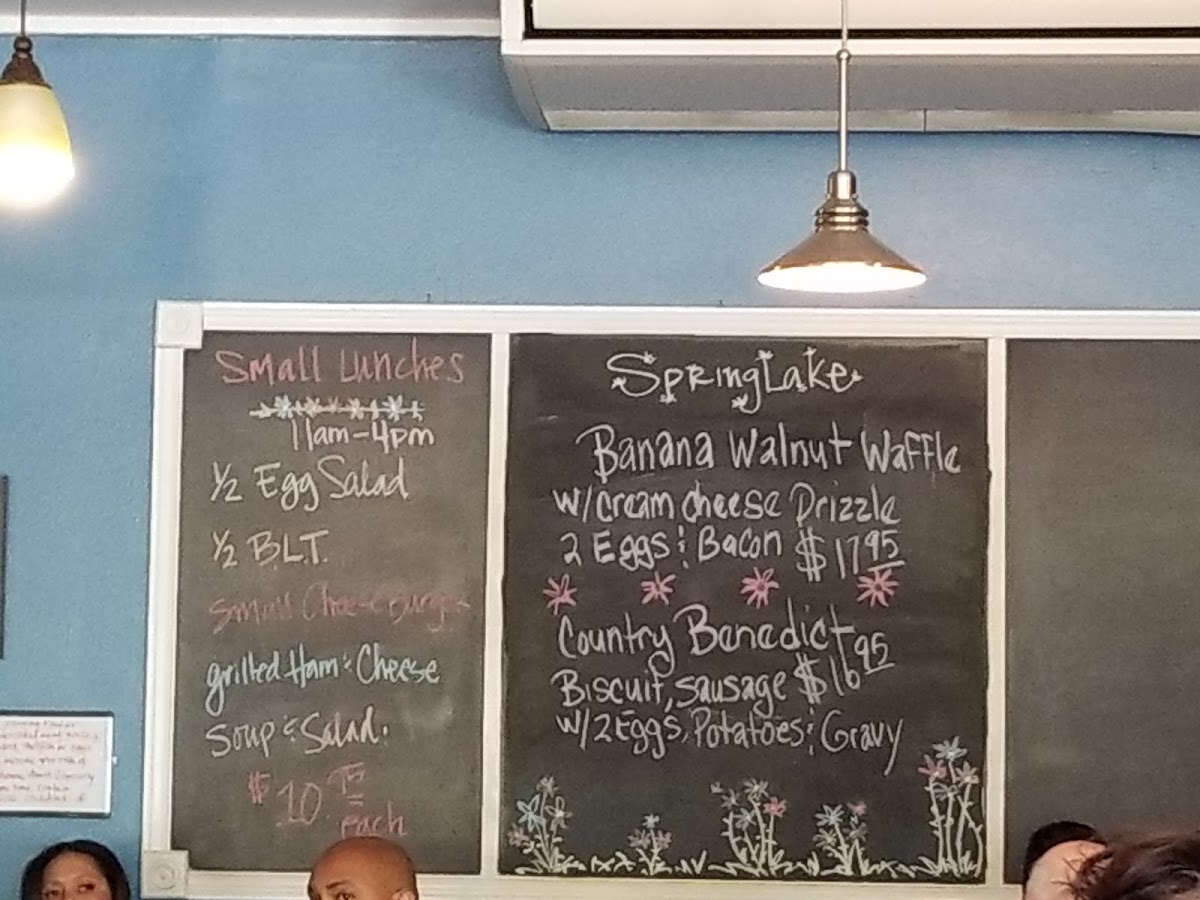 Small Lunches
11am-4pm
1/2 Egg Salad
1/2 B.L.T.
Small Cheese Burger
grilled Ham & Cheese
Soup & Salad.
$10.75
each
SpringLake
Banana Walnut Waffle
w/cream cheese Drizzle
2 Eggs & Bacon $17.95
Country Benedict
Biscuit, sausage $16.95
w/2 Eggs, Potatoes & Gravy